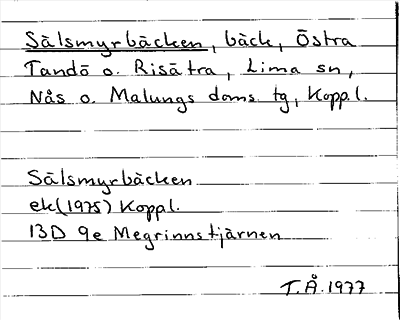 Sälsmyrbäcken, bäck, Östra
Tandö o. Risätra, Lima sn,
Nås o. Malungs doms. tg, Koppl.
Sälsmyrbäcken
ek (1975) Koppl.
13D 9e Megrinnstjärnen
T.Å. 1977